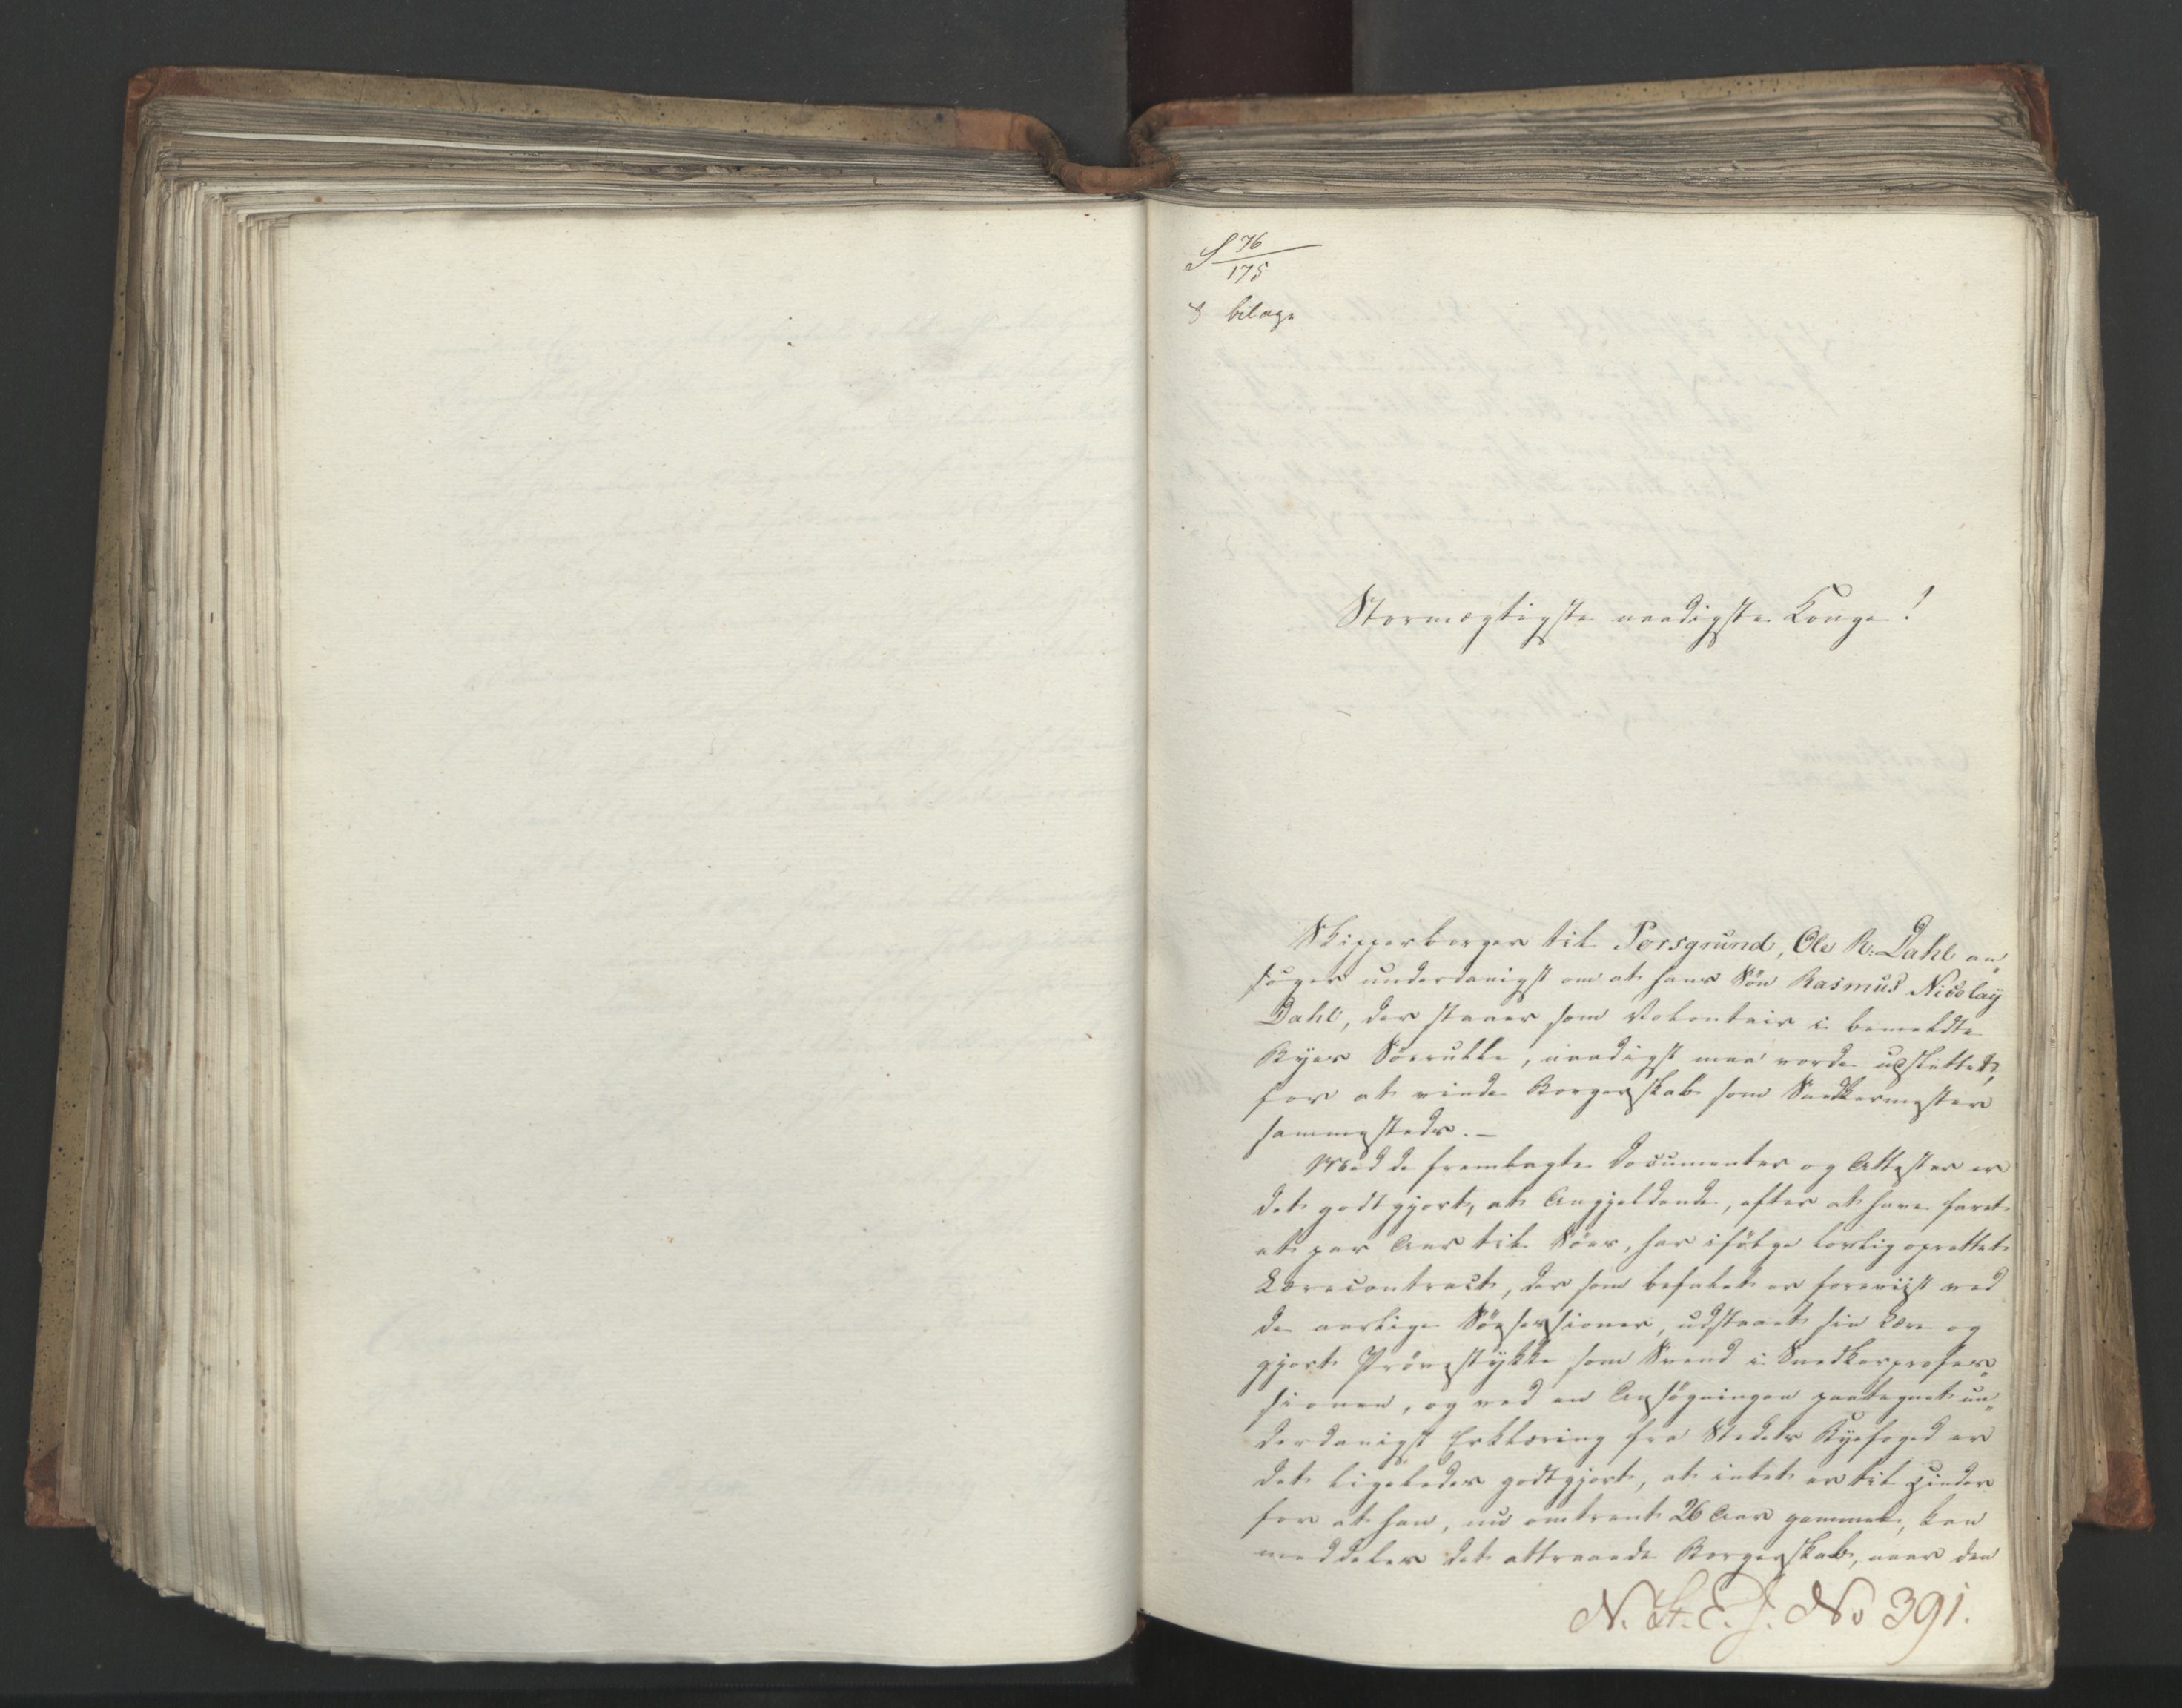 S 76/175
8 bilage
Stormægtigste naadigste Konge!
Skipperborger til Porsgrund, Ole R. Dahl an„
søger underdanigst om at hans Søn Rasmus Nicolay
Dahl, der staaer som Volontair i bemeldte
Byes Sørulle, naadigst maa vorde udslettet,
for at vinde Borgerskab som Snedkermester
sammesteds. —
Med de fremlagte Documenter og Attester er
det godtgjort, at Angjeldende, efter at have faret
et par Aar til Søes, har ifølge lovlig oprettet
Lærecontract, der som befalet er foreviist ved
de aarlige Søesessioner, udstaaet sin Lære og
gjort Prøvestykke som Svend i Snedkerprofes„
sionen, og ved en Ansøgningen paategnet un„
derdanigst Erklæring fra Stedets Byefoged er
det ligeledes godtgjort, at intet er til Hinder
for at han, nu omtrent 26 Aar gammel, kan
meddeles det attraaede Borgerskab, naar den
N. St. E. J. No 391.